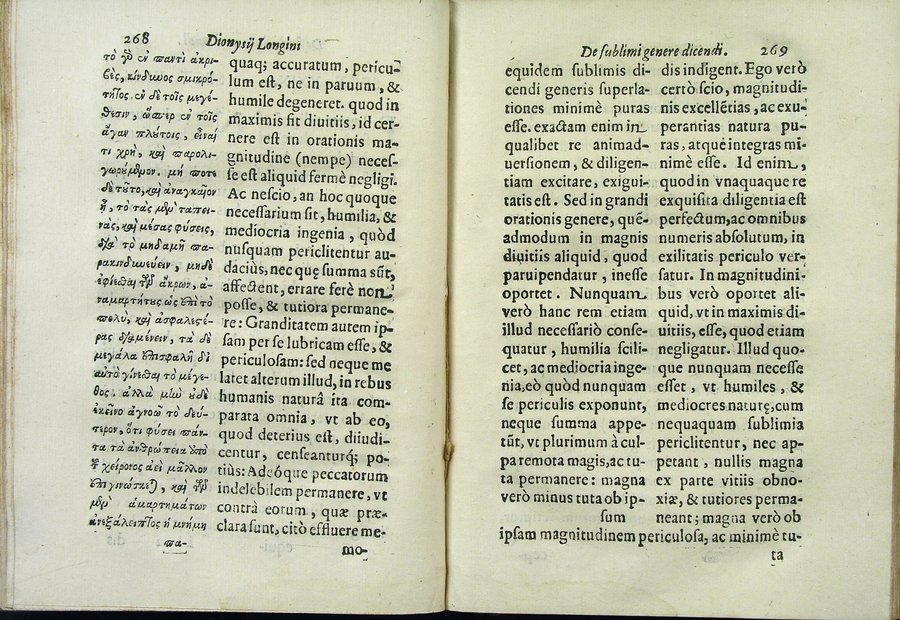 268
Dionysij Longini
τὸ γὸ ἐν παντὶ ἀκρι-
βὲς, κίνδυνος σμικρό-
τητος. ἐν δὲ τοῖς μεγέ-
θεσιν, ὥσπερ ἐν τοῖς
ἄγαν πλούτοις, εἶναί
τι χρὴ, καὶ παρολι-
γωρούμενον. μή ποτε
δὲ τοῦτο, καὶ ἀναγκαῖον
ᾖ, τὸ τὰς μὲν ταπει-
νὰς, καὶ μέσας φύσεις,
διὰ τὸ μηδαμῆ πα-
ρακινδυνεύειν, μηδὲ
ἐφίεσθαι τῶν ἄκρων, ἀ-
ναμαρτήτους ὡς ἐπὶ τὸ
πολὺ, καὶ ἀσφαλεστέ-
ρας διαμένειν, τὰ δὲ
μεγάλα ἐπισφαλῆ δι
αὐτὸ γίνεσθαι τὸ μέγε-
θος. ἀλλὰ μὴν οὐδὲ
ἐκεῖνο ἀγνοῶ τὸ δεύ-
τερον, ὅτι φύσει πάν-
τα τὰ ἀνθρώπεια ὑπὸ
τοῦ χείρονος ἀεὶ μᾶλλον
ἐπιγινώσκεται, καὶ τῶν
μὲν ἁμαρτημάτων
ἀνεξάλειπτος ἡ μνήμη
πα-
quaq; accuratum, pericu-
lum est, ne in paruum, &
humile degeneret. quod in
maximis fit diuitiis, id cer-
nere est in orationis ma-
gnitudine (nempe) neces-
se est aliquid fermè negligi.
Ac nescio, an hoc quoque
necessarium sit, humilia, &
mediocria ingenia, quòd
nusquam periclitentur au-
daciùs, nec quę summa sūt,
affectent, errare ferè non
posse, & tutiora permane-
re: Granditatem autem ip-
sam per se lubricam esse, &
periculosam: sed neque me
latet alterum illud, in rebus
humanis naturâ ita com-
parata omnia, vt ab eo,
quod deterius est, diiudi-
centur, censeanturq; po-
tiùs: Adeóque peccatorum
indelebilem permanere, vt
contrà eorum, quæ præ-
clara sunt, citò effluere me-
mo-
De sublimi genere dicendi.
269
equidem sublimis di-
cendi generis superla-
tiones minimè puras
esse. exactam enim in
qualibet re animad-
uersionem, & diligen-
tiam excitare, exigui-
tatis est. Sed in grandi
orationis genere, quē-
admodum in magnis
diuitiis aliquid, quod
paruipendatur, inesse
oportet. Nunquam
verò hanc rem etiam
illud necessariò conse-
quatur, humilia scili-
cet, ac mediocria inge-
nia, eò quòd nunquam
se periculis exponunt,
neque summa appe-
tūt, vt plurimum à cul-
pa remota magis, ac tu-
ta permanere: magna
verò minus tuta ob ip-
sum
dis indigent. Ego verò
certò scio, magnitudi-
nis excellētias, ac exu-
perantias natura pu-
ras, atque integras mi-
nimè esse. Id enim,
quod in vnaquaque re
exquisita diligentia est
perfectum, ac omnibus
numeris absolutum, in
exilitatis periculo ver-
satur. In magnitudini-
bus verò oportet ali-
quid, vt in maximis di-
uitiis, esse, quod etiam
negligatur. Illud quo-
que nunquam necesse
esset, vt humiles, &
mediocres naturę, cum
nequaquam sublimia
periclitentur, nec ap-
petant, nullis magna
ex parte vitiis obno-
xiæ, & tutiores perma-
neant; magna verò ob
ipsam magnitudinem periculosa, ac minimè tu-
ta